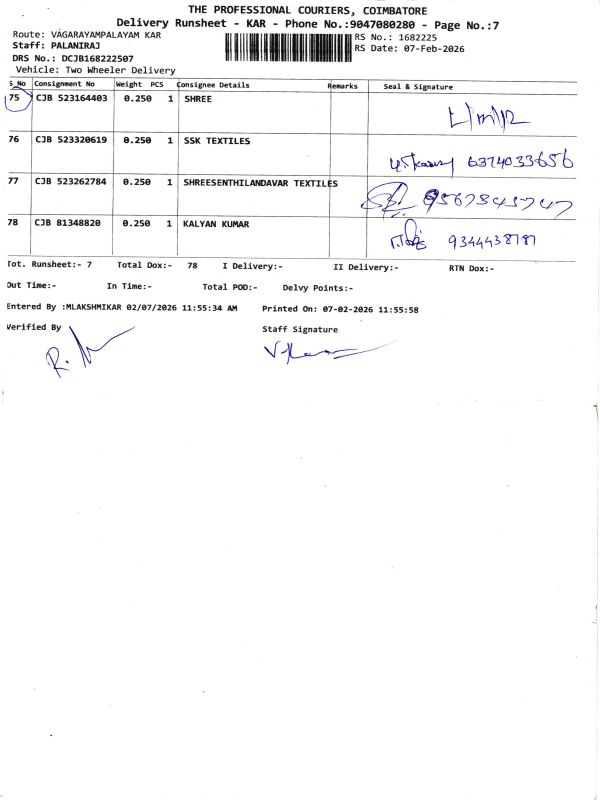 THE PROFESSIONAL COURIERS, COIMBATORE
Delivery Runsheet - KAR - Phone No.:9047080280 - Page No.:7
Route: VAGARAYAMPALAYAM KAR
RS No.: 1682225
Staff: PALANIRAJ
RS Date: 07-Feb-2026
DRS No.: DCJB168222507
Vehicle: Two Wheeler Delivery
S_No Consignment No Weight PCS Consignee Details Remarks Seal & Signature
75 CJB 523164403 0.250 1 SHREE
76 CJB 523320619 0.250 1 SSK TEXTILES 6374033656
77 CJB 523262784 0.250 1 SHREESENTHILANDAVAR TEXTILES
78 CJB 81348820 0.250 1 KALYAN KUMAR 9344438787
Tot. Runsheet:- 7 Total Dox:- 78 I Delivery:- II Delivery:- RTN Dox:-
Out Time:- In Time:- Total POD:- Delvy Points:-
Entered By :MLAKSHMIKAR 02/07/2026 11:55:34 AM Printed On: 07-02-2026 11:55:58
Verified By Staff Signature